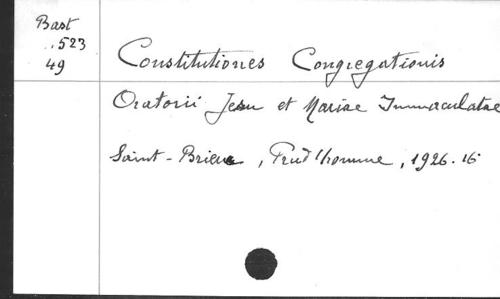 Bast
.523
49
Constitutiones Congregationis
Oratorii Jesu et Mariae Immaculatae
Saint-Brieuc, Prud'homme, 1926. 16